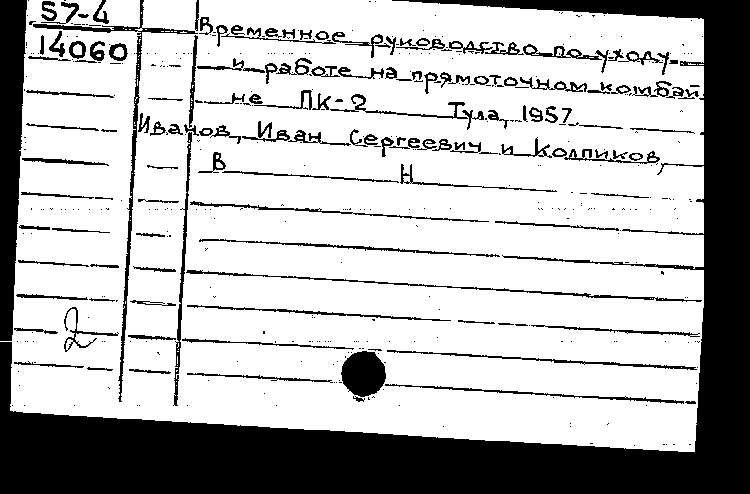 57-4
14060
Временное руководство по уходу
и работе на прямоточном комбай
не ПК-2 Тула, 1957.
Иванов, Иван Сергеевич и Колпиков,
В Н
2